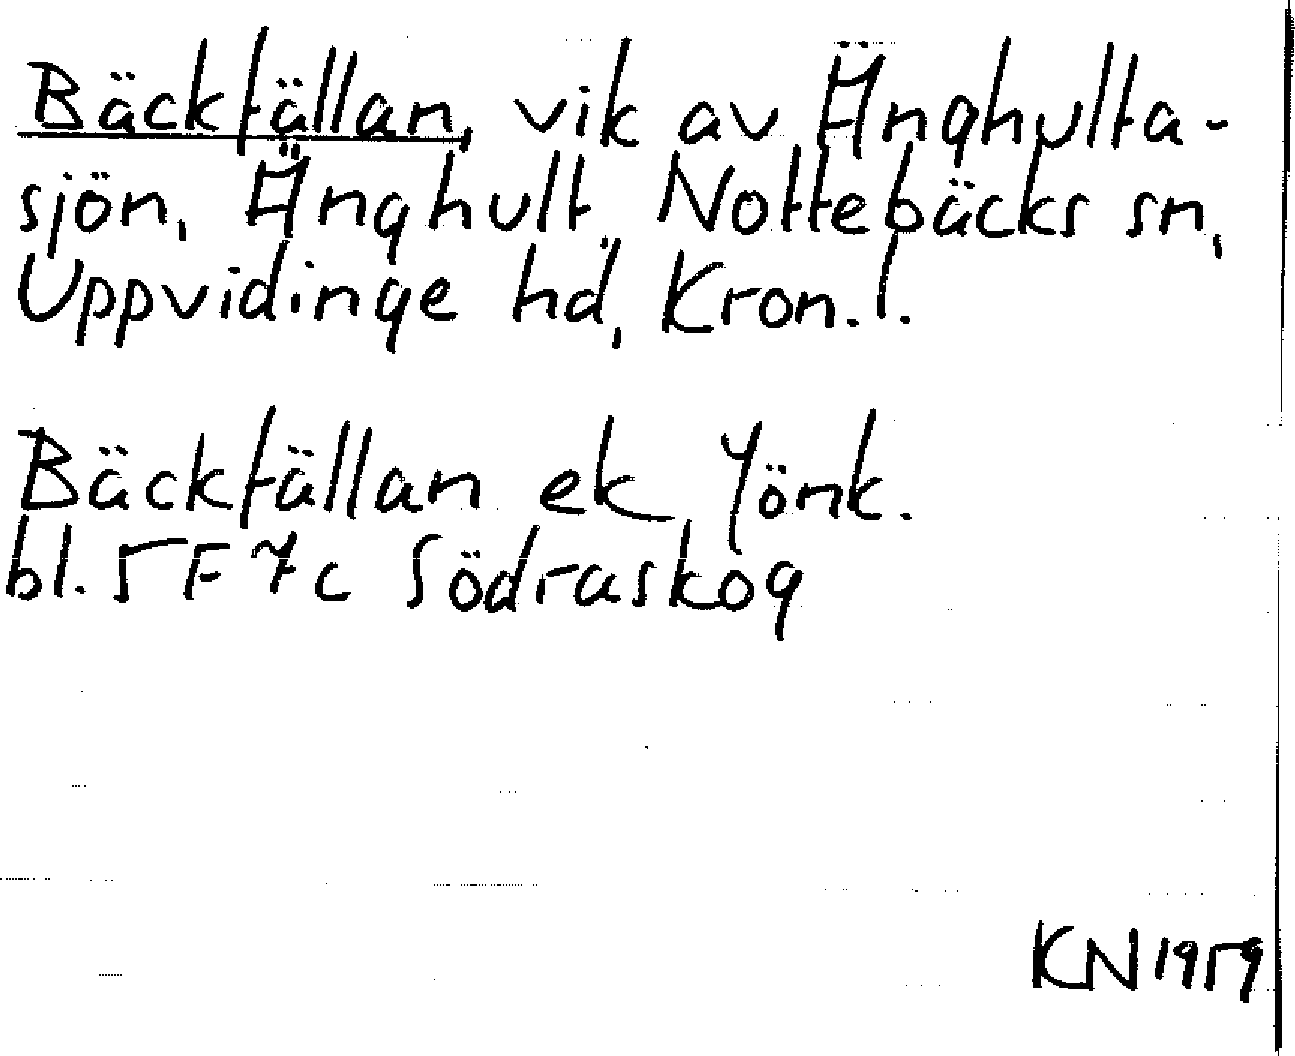 Bäckfällan, vik av Änghulta-
sjön, Änghult, Nottebäcks sn,
Uppvidinge hd, Kron.l.
Bäckfällan ek Jönk.
bl. 5F7c Södraskog
KN 1959